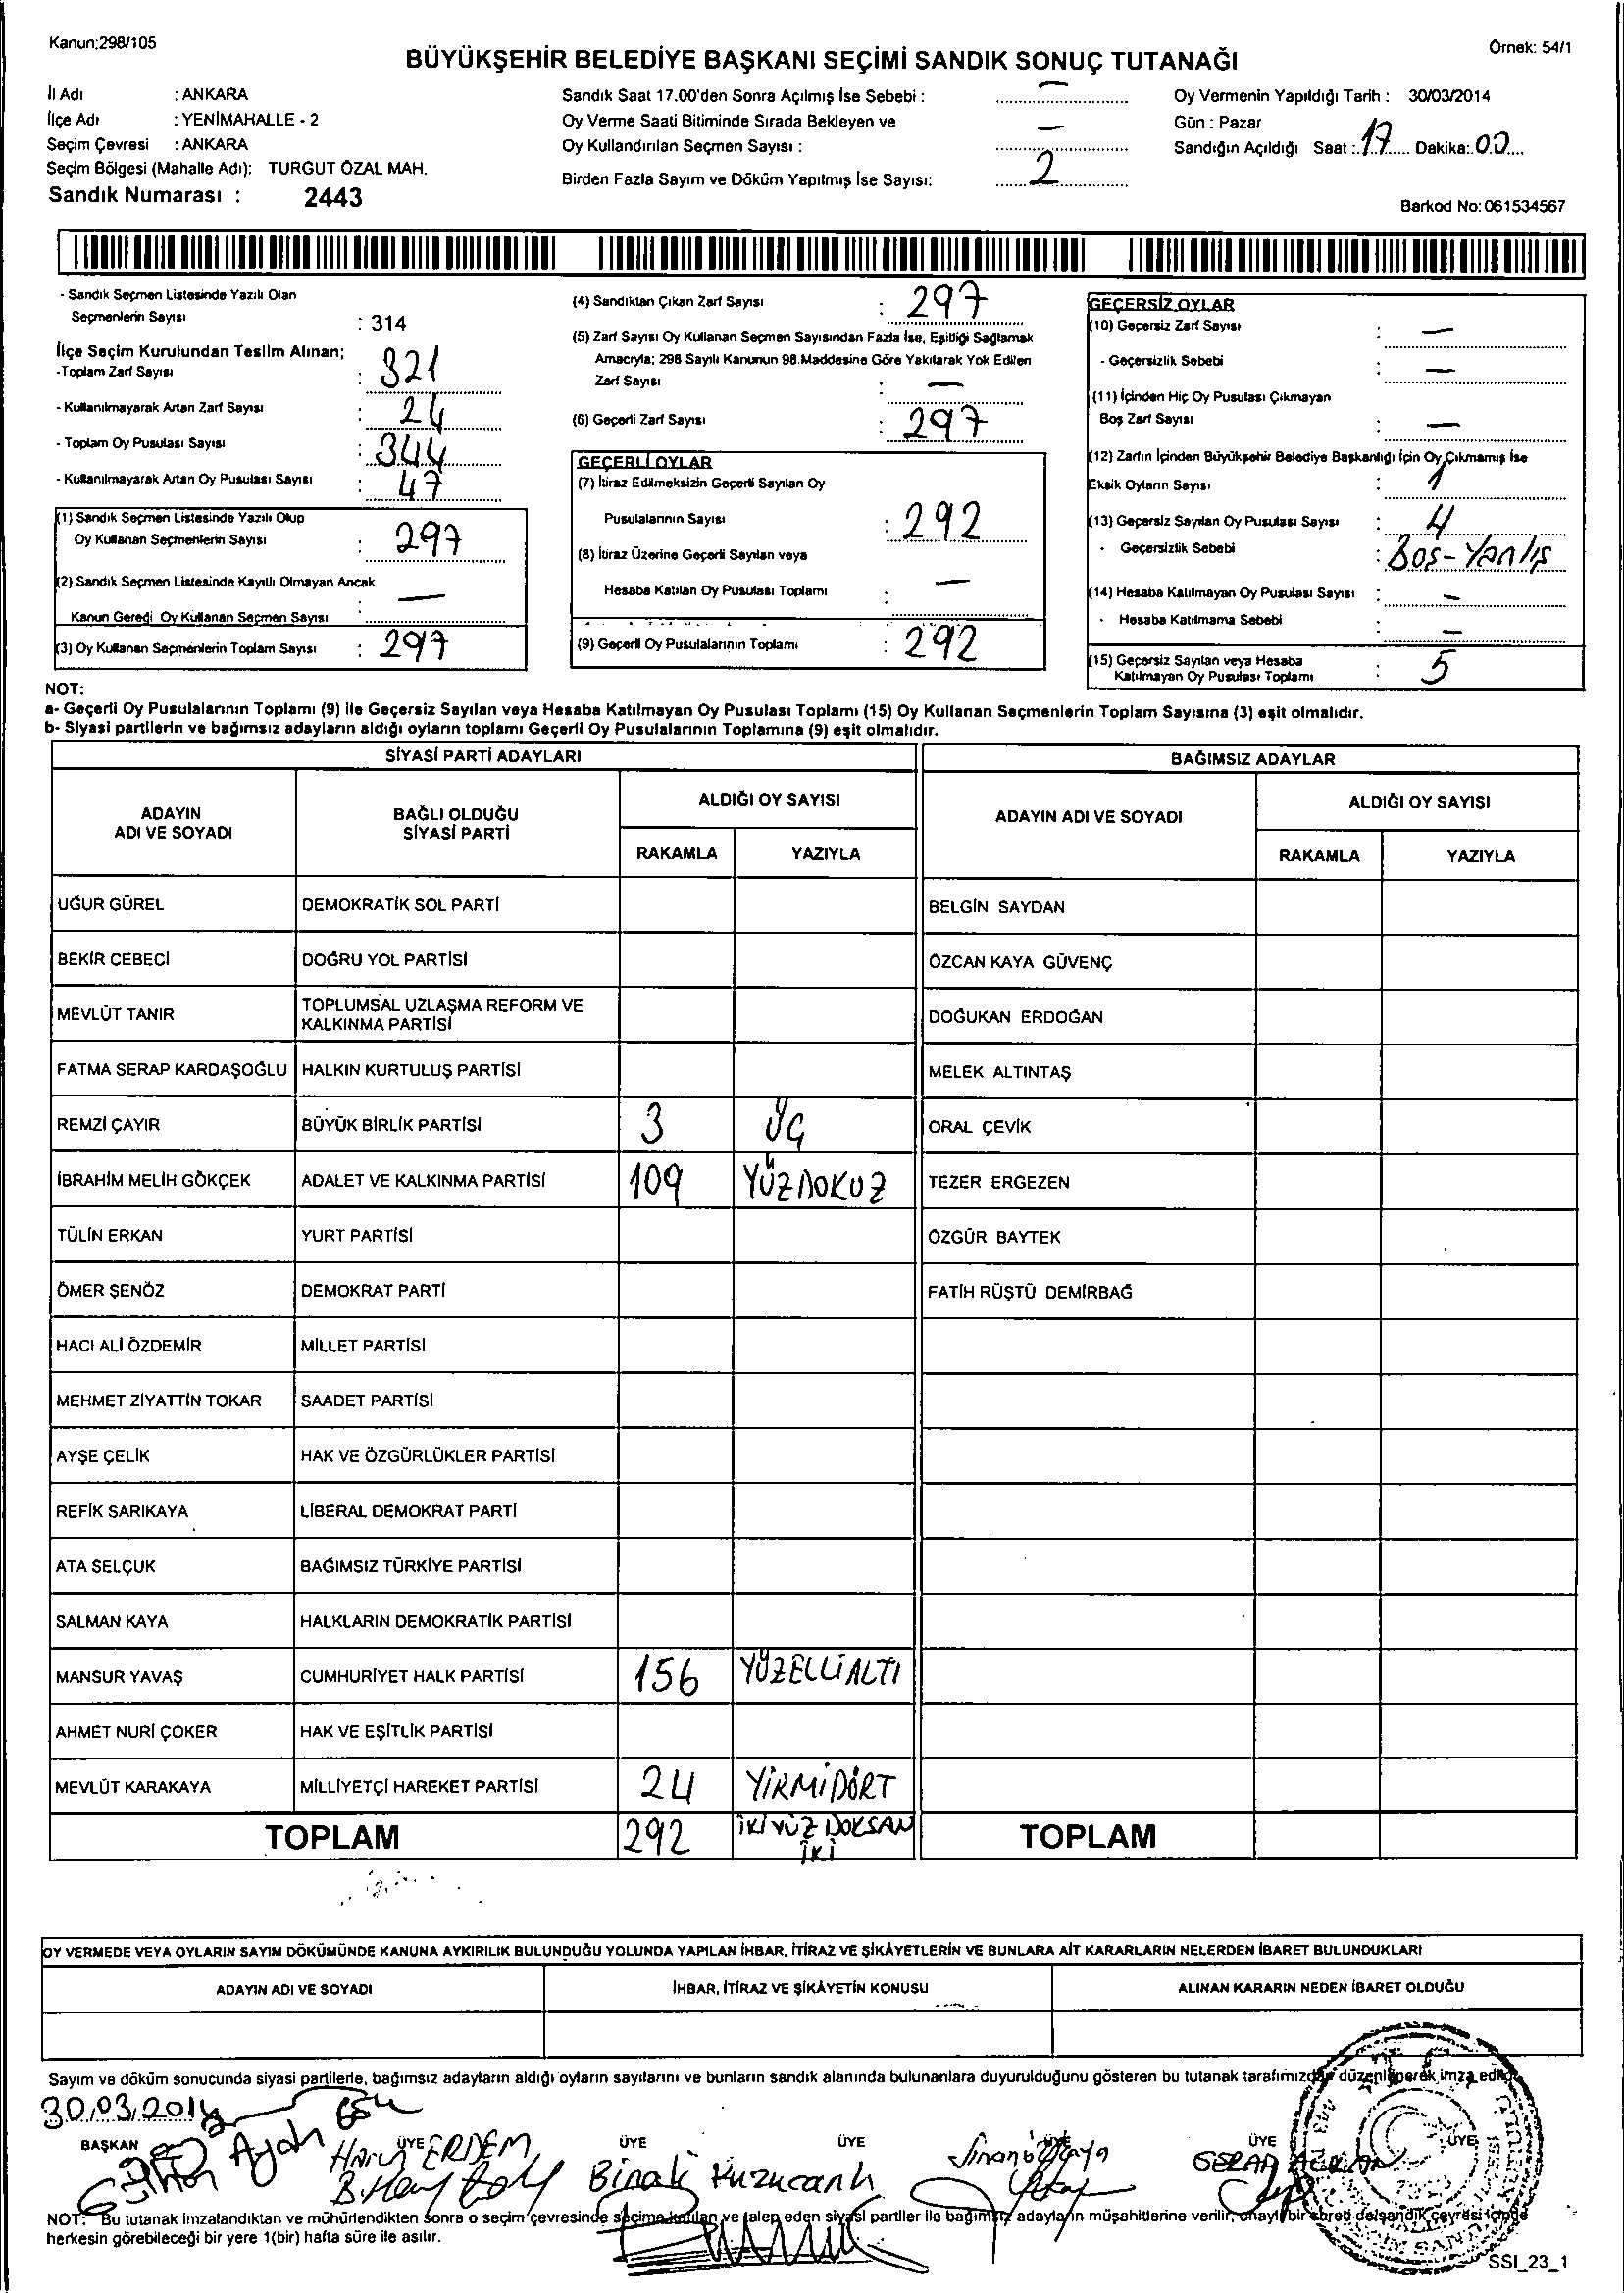 Kanun:298/105
Örnek: 54/1
BÜYÜKŞEHİR BELEDİYE BAŞKANI SEÇİMİ SANDIK SONUÇ TUTANAĞI
İl Adı : ANKARA
İlçe Adı : YENİMAHALLE - 2
Seçim Çevresi : ANKARA
Seçim Bölgesi (Mahalle Adı): TURGUT ÖZAL MAH.
Sandık Numarası : 2443
Sandık Saat 17.00'den Sonra Açılmış İse Sebebi : —
Oy Verme Saati Bitiminde Sırada Bekleyen ve
Oy Kullandırılan Seçmen Sayısı : —
Birden Fazla Sayım ve Döküm Yapılmış İse Sayısı: 2
Oy Vermenin Yapıldığı Tarih : 30/03/2014
Gün : Pazar
Sandığın Açıldığı Saat : 17 Dakika: 00
Barkod No: 061534567
- Sandık Seçmen Listesinde Yazılı Olan
Seçmenlerin Sayısı : 314
İlçe Seçim Kurulundan Teslim Alınan;
-Toplam Zarf Sayısı : 321
- Kullanılmayarak Artan Zarf Sayısı : 24
- Toplam Oy Pusulası Sayısı : 344
- Kullanılmayarak Artan Oy Pusulası Sayısı : 47
(1) Sandık Seçmen Listesinde Yazılı Olup
Oy Kullanan Seçmenlerin Sayısı : 297
(2) Sandık Seçmen Listesinde Kayıtlı Olmayan Ancak
Kanun Gereği Oy Kullanan Seçmen Sayısı : —
(3) Oy Kullanan Seçmenlerin Toplam Sayısı : 297
(4) Sandıktan Çıkan Zarf Sayısı : 297
(5) Zarf Sayısı Oy Kullanan Seçmen Sayısından Fazla İse, Eşitliği Sağlamak
Amacıyla; 298 Sayılı Kanunun 98.Maddesine Göre Yakılarak Yok Edilen
Zarf Sayısı : —
(6) Geçerli Zarf Sayısı : 297
GEÇERLİ OYLAR
(7) İtiraz Edilmeksizin Geçerli Sayılan Oy
Pusulalarının Sayısı : 292
(8) İtiraz Üzerine Geçerli Sayılan veya
Hesaba Katılan Oy Pusulası Toplamı : —
(9) Geçerli Oy Pusulalarının Toplamı : 292
GEÇERSİZ OYLAR
(10) Geçersiz Zarf Sayısı : —
- Geçersizlik Sebebi : —
(11) İçinden Hiç Oy Pusulası Çıkmayan
Boş Zarf Sayısı : —
(12) Zarfın İçinden Büyükşehir Belediye Başkanlığı İçin Oy Çıkmamış İse
Eksik Oyların Sayısı : 1
(13) Geçersiz Sayılan Oy Pusulası Sayısı : 4
- Geçersizlik Sebebi : Boş-Yanlış
(14) Hesaba Katılmayan Oy Pusulası Sayısı : —
- Hesaba Katılmama Sebebi : —
(15) Geçersiz Sayılan veya Hesaba
Katılmayan Oy Pusulası Toplamı : 5
NOT:
a- Geçerli Oy Pusulalarının Toplamı (9) ile Geçersiz Sayılan veya Hesaba Katılmayan Oy Pusulası Toplamı (15) Oy Kullanan Seçmenlerin Toplam Sayısına (3) eşit olmalıdır.
b- Siyasi partilerin ve bağımsız adayların aldığı oyların toplamı Geçerli Oy Pusulalarının Toplamına (9) eşit olmalıdır.
SİYASİ PARTİ ADAYLARI
BAĞIMSIZ ADAYLAR
ADAYIN ADI VE SOYADI
BAĞLI OLDUĞU SİYASİ PARTİ
ALDIĞI OY SAYISI
RAKAMLA YAZIYLA
ADAYIN ADI VE SOYADI
ALDIĞI OY SAYISI
RAKAMLA YAZIYLA
UĞUR GÜREL DEMOKRATİK SOL PARTİ BELGİN SAYDAN
BEKİR CEBECİ DOĞRU YOL PARTİSİ ÖZCAN KAYA GÜVENÇ
MEVLÜT TANIR TOPLUMSAL UZLAŞMA REFORM VE KALKINMA PARTİSİ DOĞUKAN ERDOĞAN
FATMA SERAP KARDAŞOĞLU HALKIN KURTULUŞ PARTİSİ MELEK ALTINTAŞ
REMZİ ÇAYIR BÜYÜK BİRLİK PARTİSİ 3 ÜÇ ORAL ÇEVİK
İBRAHİM MELİH GÖKÇEK ADALET VE KALKINMA PARTİSİ 109 YÜZDOKUZ TEZER ERGEZEN
TÜLİN ERKAN YURT PARTİSİ ÖZGÜR BAYTEK
ÖMER ŞENÖZ DEMOKRAT PARTİ FATİH RÜŞTÜ DEMİRBAĞ
HACI ALİ ÖZDEMİR MİLLET PARTİSİ
MEHMET ZİYATTİN TOKAR SAADET PARTİSİ
AYŞE ÇELİK HAK VE ÖZGÜRLÜKLER PARTİSİ
REFİK SARIKAYA LİBERAL DEMOKRAT PARTİ
ATA SELÇUK BAĞIMSIZ TÜRKİYE PARTİSİ
SALMAN KAYA HALKLARIN DEMOKRATİK PARTİSİ
MANSUR YAVAŞ CUMHURİYET HALK PARTİSİ 156 YÜZELLİALTI
AHMET NURİ ÇOKER HAK VE EŞİTLİK PARTİSİ
MEVLÜT KARAKAYA MİLLİYETÇİ HAREKET PARTİSİ 24 YİRMİDÖRT
TOPLAM 292 İKİYÜZ DOKSAN İKİ TOPLAM
OY VERMEDE VEYA OYLARIN SAYIM DÖKÜMÜNDE KANUNA AYKIRILIK BULUNDUĞU YOLUNDA YAPILAN İHBAR, İTİRAZ VE ŞİKÂYETLERİN VE BUNLARA AİT KARARLARIN NELERDEN İBARET BULUNDUKLARI
ADAYIN ADI VE SOYADI İHBAR, İTİRAZ VE ŞİKÂYETİN KONUSU ALINAN KARARIN NEDEN İBARET OLDUĞU
Sayım ve döküm sonucunda siyasi partilerle, bağımsız adayların aldığı oyların sayılarını ve bunların sandık alanında bulunanlara duyurulduğunu gösteren bu tutanak tarafımızdan düzenlenerek imza edildi.
30.03.2014
BAŞKAN ÜYE ÜYE ÜYE ÜYE ÜYE ÜYE
Harun ERDEM
Binali Kuzucanlı
NOT: Bu tutanak imzalandıktan ve mühürlendikten sonra o seçim çevresinde seçime katılan ve talep eden siyasi partiler ile bağımsız adayların müşahitlerine verilir, onaylı bir sureti de sandık çevresi içinde
herkesin görebileceği bir yere 1(bir) hafta süre ile asılır.
SSI_23_1